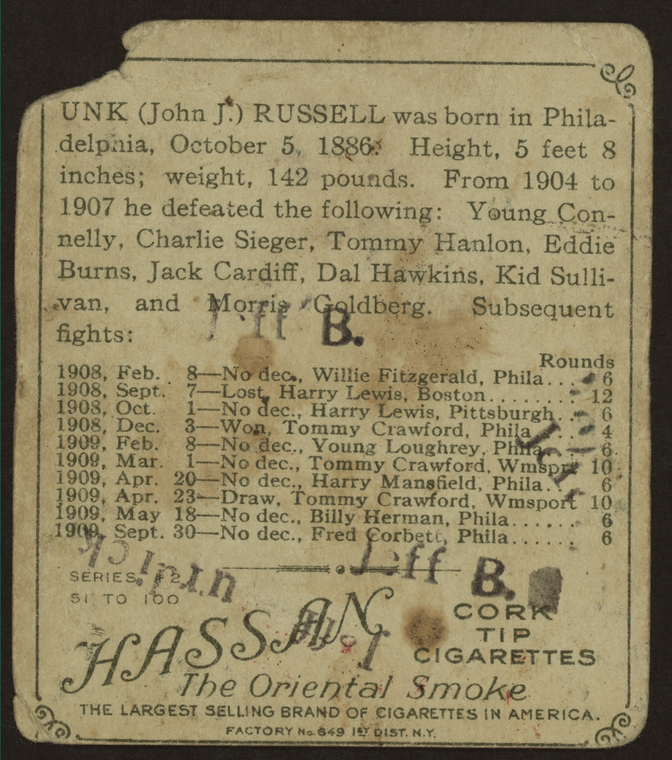 UNK (John J.) RUSSELL was born in Phila-
delphia, October 5, 1886. Height, 5 feet 8
inches; weight, 142 pounds. From 1904 to
1907 he defeated the following: Young Con-
nelly, Charlie Sieger, Tommy Hanlon, Eddie
Burns, Jack Cardiff, Dal Hawkins, Kid Sulli-
van, and Morris Goldberg. Subsequent
fights:
B.
Rounds
1908, Feb. 8—No dec., Willie Fitzgerald, Phila... 6
1908, Sept. 7—Lost, Harry Lewis, Boston........ 12
1908, Oct. 1—No dec., Harry Lewis, Pittsburgh.. 6
1908, Dec. 3—Won, Tommy Crawford, Phila.... 4
1909, Feb. 8—No dec., Young Loughrey, Phila. 6
1909, Mar. 1—No dec., Tommy Crawford, Wmsport 10
1909, Apr. 20—No dec., Harry Mansfield, Phila.. 6
1909, Apr. 23—Draw, Tommy Crawford, Wmsport 10
1909, May 18—No dec., Billy Herman, Phila...... 6
1909, Sept. 30—No dec., Fred Corbett, Phila..... 6
B.
SERIES
51 TO 100
HASSAN
CORK
TIP
CIGARETTES
The Oriental Smoke
THE LARGEST SELLING BRAND OF CIGARETTES IN AMERICA.
FACTORY No. 649 1ST DIST. N.Y.